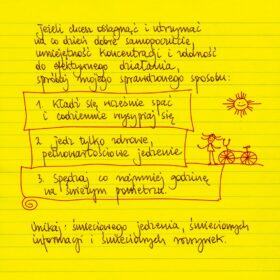 Jeżeli chcesz osiągnąć i utrzymać
na co dzień dobre samopoczucie,
umiejętność koncentracji i zdolność
do efektywnego działania,
spróbuj mojego sprawdzonego sposobu:
1. Kładź się wcześnie spać
i codziennie wysypiaj się
2. jedz tylko zdrowe,
pełnowartościowe jedzenie
3. Spędzaj co najmniej godzinę
na świeżym powietrzu.
Unikaj: śmieciowego jedzenia, śmieciowych
informacji i śmieciowych rozrywek.